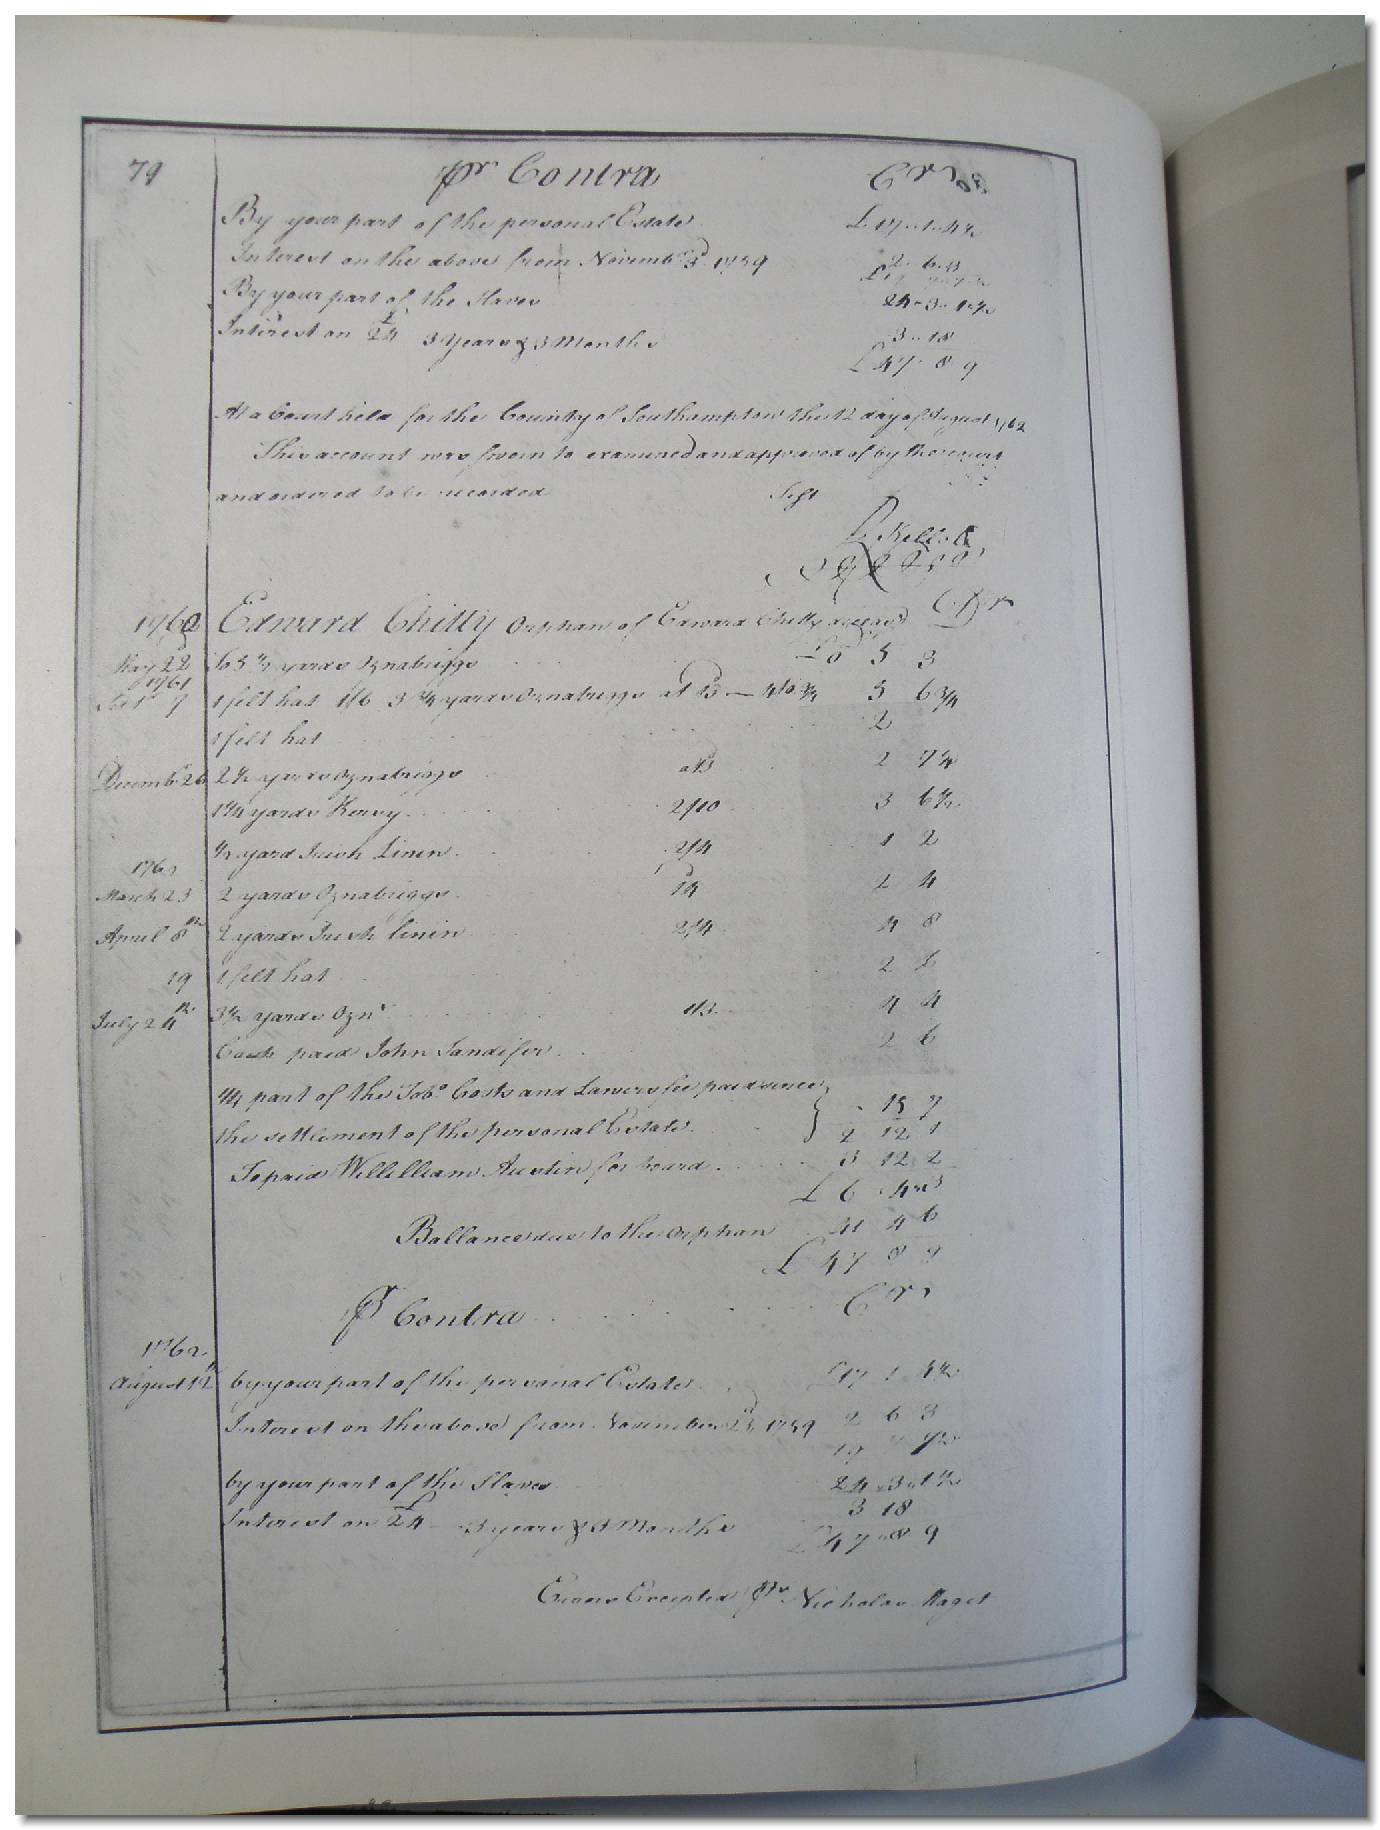 79 pr Contra Cr
By your part of the personal Estate £17 1 4½
Interest on the above from Novemb 1759 2 6 3
By your part of the Slaves 24 3 1½
Interest on £24 3 Years & 3 Months 3 18
£47 8 9
At a Court held for the County of Southampton the 12 day of August 1762
This account was sworn to examined and approved of by the court
and ordered to be recorded
1760 Edward Chitty Orphan of Edward Chitty Dr
May 22 To 5½ yards Oznabriggs 5 3
1761
9 1 felt hat 1/6 3¾ yards Oznabriggs at 5 6¾
1 felt hat 2
Decemb 26 2½ yards Oznabriggs a 13 2 7¼
1¼ yards Kersy 2/10 3 6½
½ yard Irish Linen 2/4 1 2
March 23 2 yards Oznabriggs 14 2 4
April 8th 2 yards Irish linin 2/4 4 8
19 1 felt hat 2
July 24th 3½ yards Ozn 1/3 4 4
Cash paid John Sandifer 2 6
¼ part of the Costs and Lawers fee paid since
15 7
the settlement of the personal Estate 2 12 1
To paid Willilliam Austin for board 3 12 2
£6 4 3
Ballance due to the orphan 41 4 6
£47 8 9
pr Contra Cr
1762
August 12 by your part of the personal Estate £17 1 4½
Interest on the above from November 1759 2 6 3
19 7 7½
by your part of the Slaves 24 3 1½
Interest on £24 3 years & 3 Months 3 18
£47 8 9
Errors Excepted pr Nicholas Maget